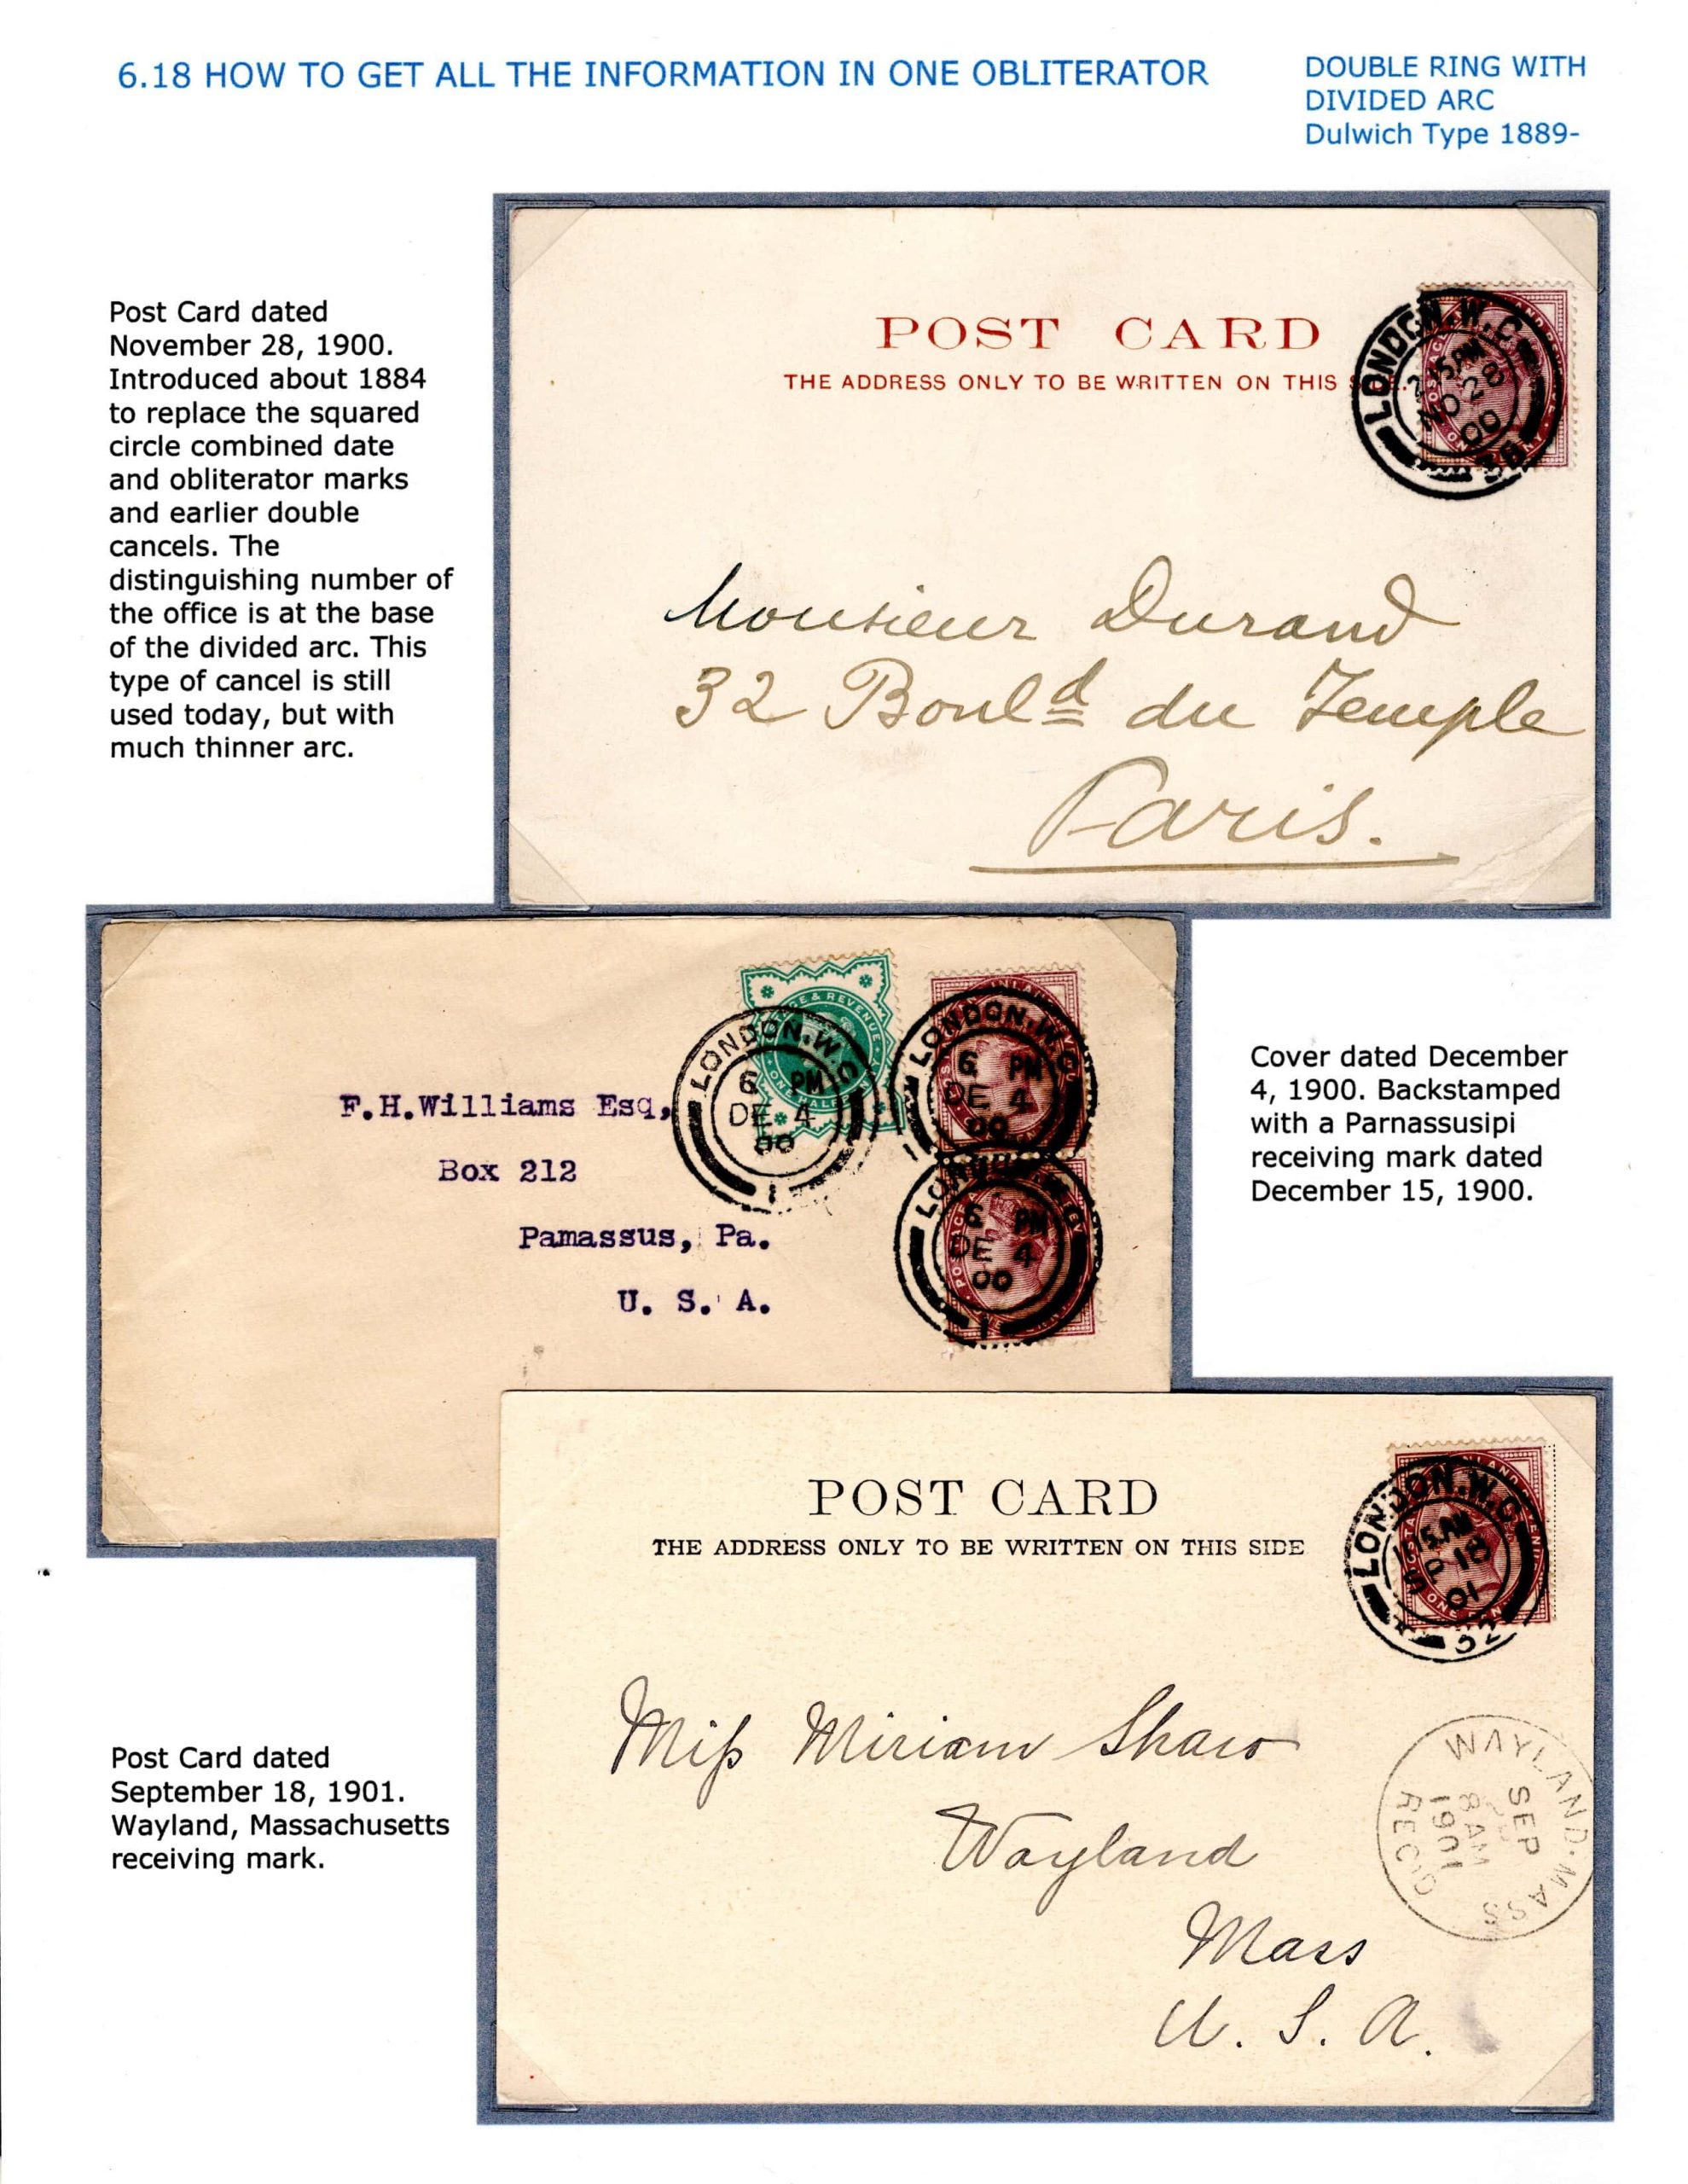 6.18 HOW TO GET ALL THE INFORMATION IN ONE OBLITERATOR
DOUBLE RING WITH
DIVIDED ARC
Dulwich Type 1889-
Post Card dated
November 28, 1900.
Introduced about 1884
to replace the squared
circle combined date
and obliterator marks
and earlier double
cancels. The
distinguishing number of
the office is at the base
of the divided arc. This
type of cancel is still
used today, but with
much thinner arc.
POST CARD
THE ADDRESS ONLY TO BE WRITTEN ON THIS
LONDON.W.C
NO 28
00
Monsieur Durand
32 Bould du Temple
Paris.
POSTAGE & REVENUE
ONE HALF
LONDON.W.C
6 PM
DE 4
00
1
LONDON.W.C
6 PM
DE 4
00
1
LONDON.W.C
6 PM
DE 4
00
1
F.H.Williams Esq,
Box 212
Pamassus, Pa.
U. S. A.
Cover dated December
4, 1900. Backstamped
with a Parnassusipi
receiving mark dated
December 15, 1900.
POST CARD
THE ADDRESS ONLY TO BE WRITTEN ON THIS SIDE
LONDON.W.C
SP 18
01
32
Miss Miriam Shaw
Wayland
Mass
U. S. A.
WAYLAND. MASS
SEP
8 AM
1901
REC'D
Post Card dated
September 18, 1901.
Wayland, Massachusetts
receiving mark.